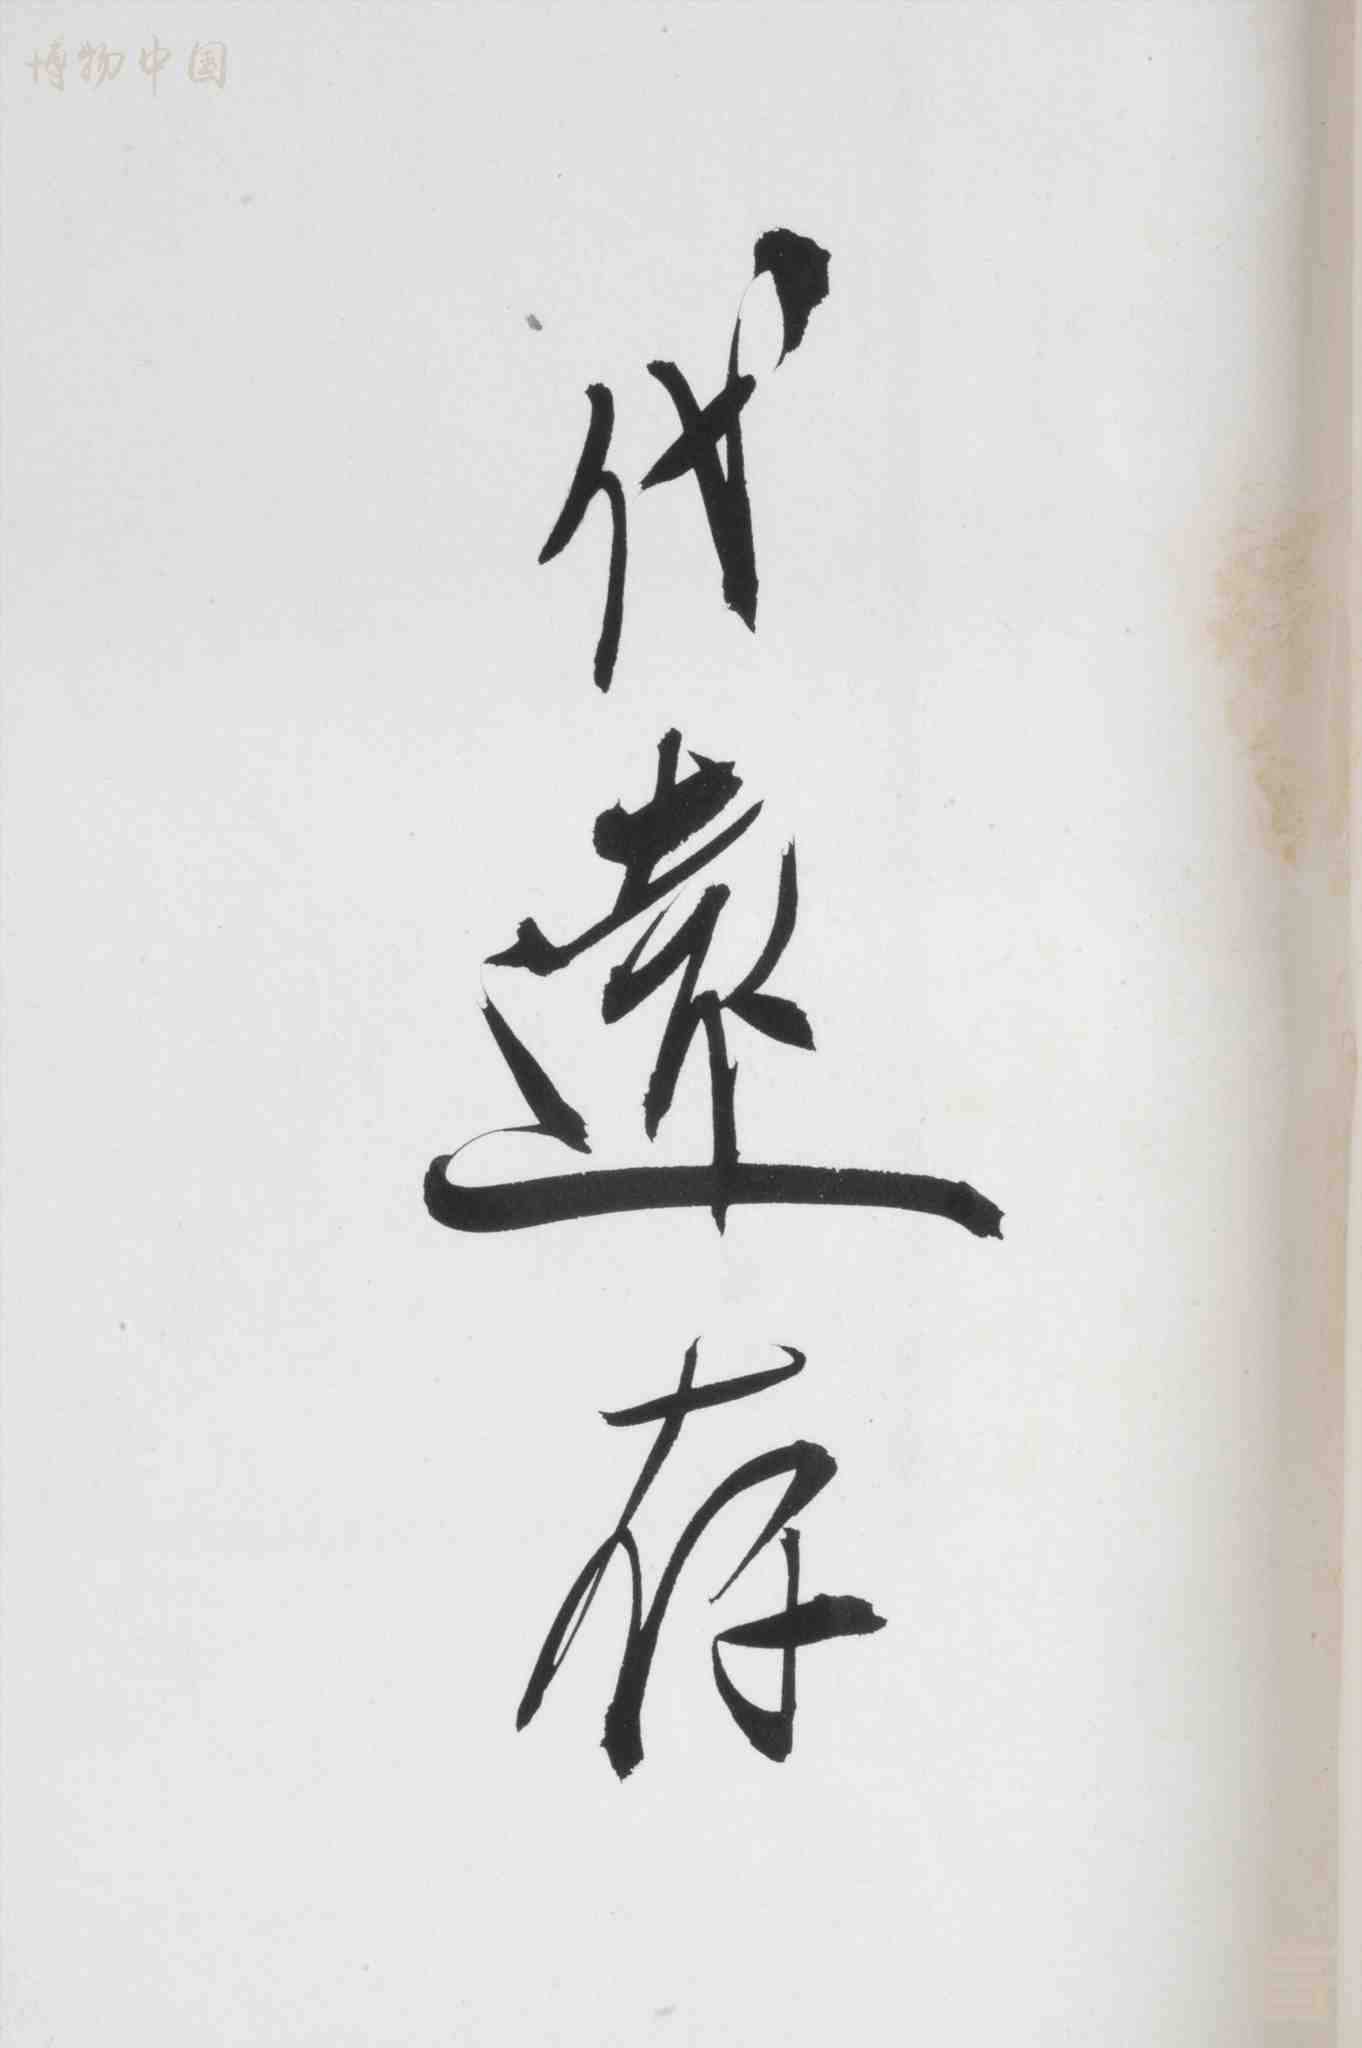 博物中国
代遠存